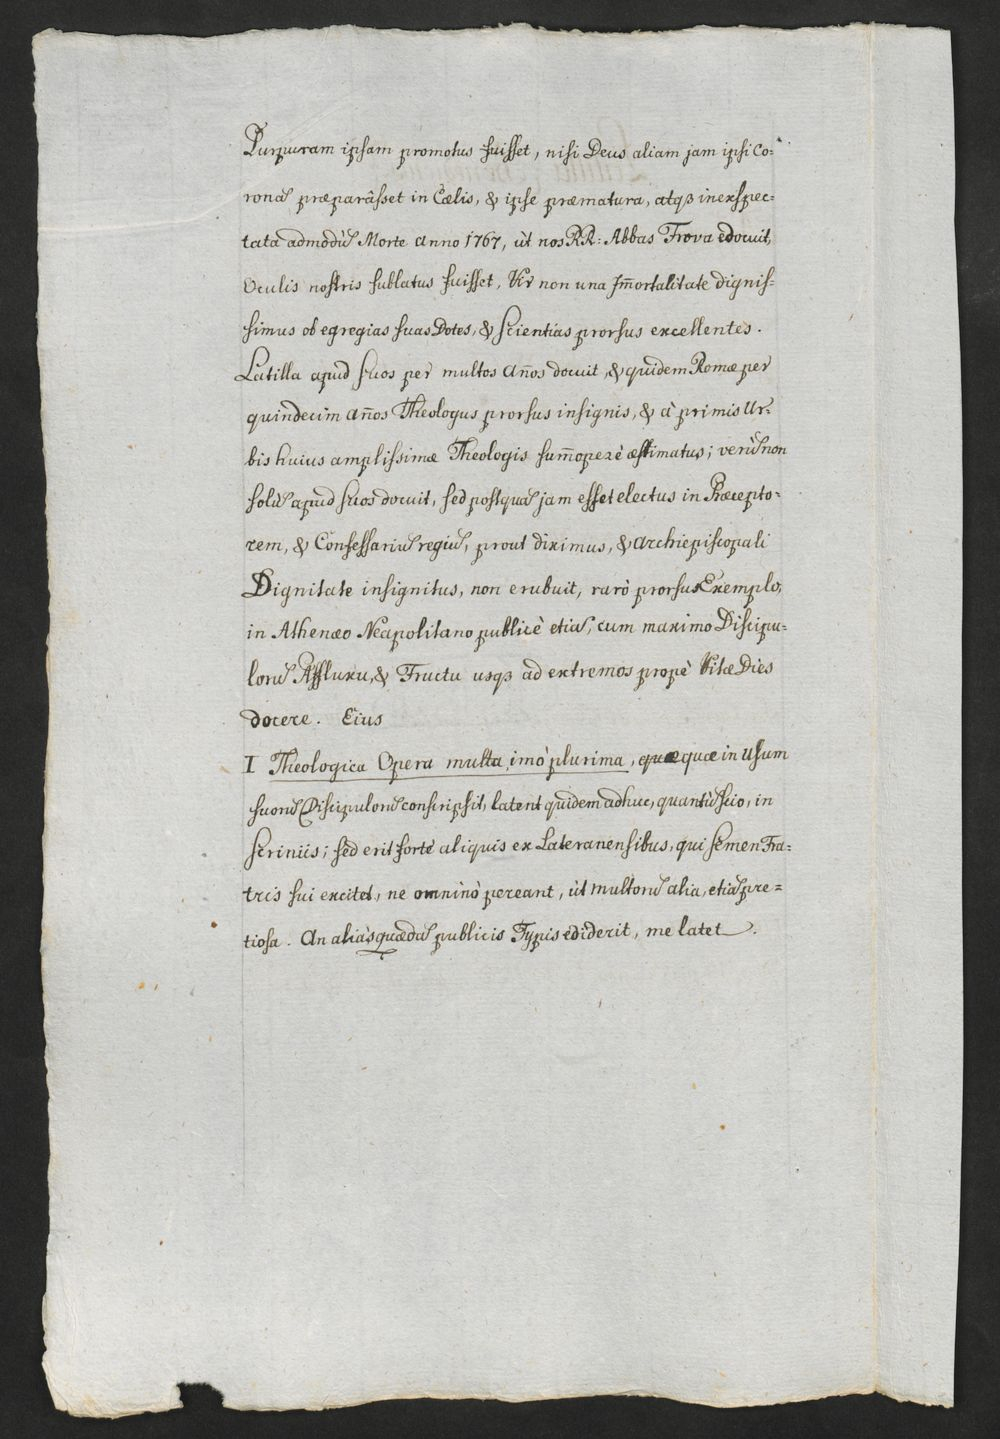 Purpuram ipsam promotus fuisset, nisi Deus aliam jam ipsi Co=
ronā præparâsset in Cælis, & ipse præmatura, atqꝫ inexspec=
tata admodū Morte Anno 1767, ùt nos RR: Abbas Trova edocuit,
Oculis nostris sublatus fuisset, Vir non una Im̄ortalitate dignis=
simus ob egregias suas Dotes, & Scientias prorsus excellentes.
Latilla apud suos per multos An̄os docuit, & quidem Romæ per
quindecim An̄os Theologus prorsus insignis, & à primis Ur=
bis huius amplissimæ Theologis sum̄operè æstimatus; verū non
solū apud suos docuit, sed postquā jam esset electus in Præcepto=
rem, & Confessariū regiū, prout diximus, & Archiepiscopali
Dignitate insignitus, non erubuit, rarò prorsus Exemplo,
in Athenæo Neapolitano publicè etiā, cum maximo Discipu=
lorū Affluxu, & Fructu usqꝫ ad extremos propè Vitæ Dies
docere. Eius
I Theologica Opera multa, imò plurima, quæ quæ in Usum
suorū Discipulorū conscripsit, latent quidem adhuc, quantū scio, in
scriniis; sed erit fortè aliquis ex Lateranensibus, qui semen Fra=
tris sui excitet, ne omninò pereant, ùt multorū alia, etiā pre=
tiosa. An aliàs quædā publicis Typis ediderit, me latet.